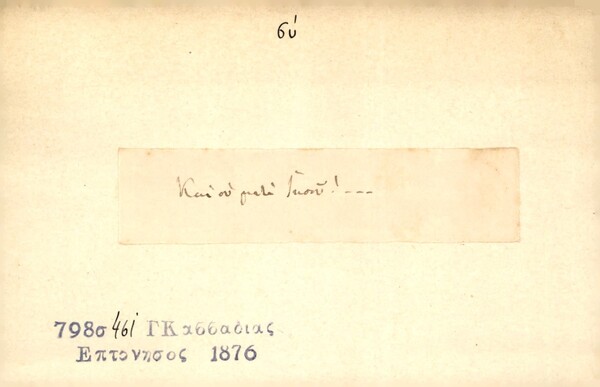 σύ
Και σύ μετά Ἰησοῦ!---
798σ 461 ΓΚαββαδιας
Επτονησος 1876